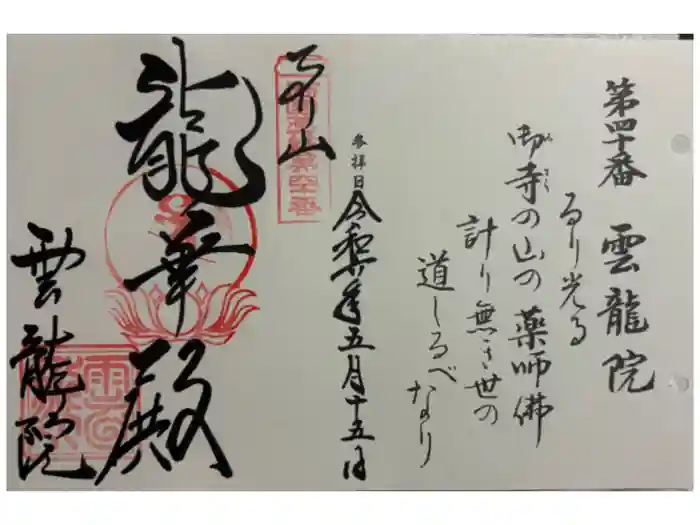 第四十番 雲龍院
るり光る
御寺の山の薬師佛
計り無き世の
道しるべなり
参拝日
令和六年五月十五日
龍華殿
雲龍院